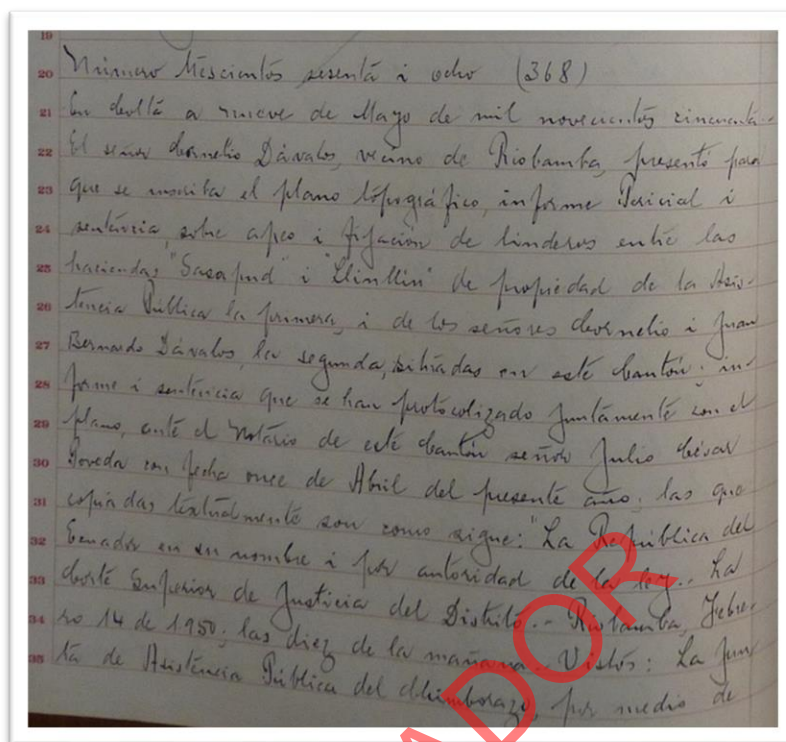 19
20 Número trescientos sesenta i ocho (368)
21 En Colta a nueve de Mayo de mil novecientos cincuenta.-
22 El señor Cornelio Dávalos, vecino de Riobamba, presentó para
23 que se inscriba el plano topográfico, informe Pericial i
24 sentencia, sobre apeo i fijación de linderos entre las
25 haciendas "Sasapud" i "Llinllin" de propiedad de la Asis-
26 tencia Pública la primera, i de los señores Cornelio i Juan
27 Bernardo Dávalos, la segunda, situadas en este Cantón; in-
28 forme i sentencia que se han protocolizado juntamente con el
29 plano, ante el Notario de este Cantón señor Julio César
30 Poveda con fecha once de Abril del presente año; las que
31 copiadas textualmente son como sigue: "La República del
32 Ecuador en su nombre i por autoridad de la ley.- La
33 Corte Superior de Justicia del Distrito.- Riobamba, Febre-
34 ro 14 de 1950; las diez de la mañana.- Vistos: La Jun
35 ta de Asistencia Pública del Chimborazo, por medio de
ADOR